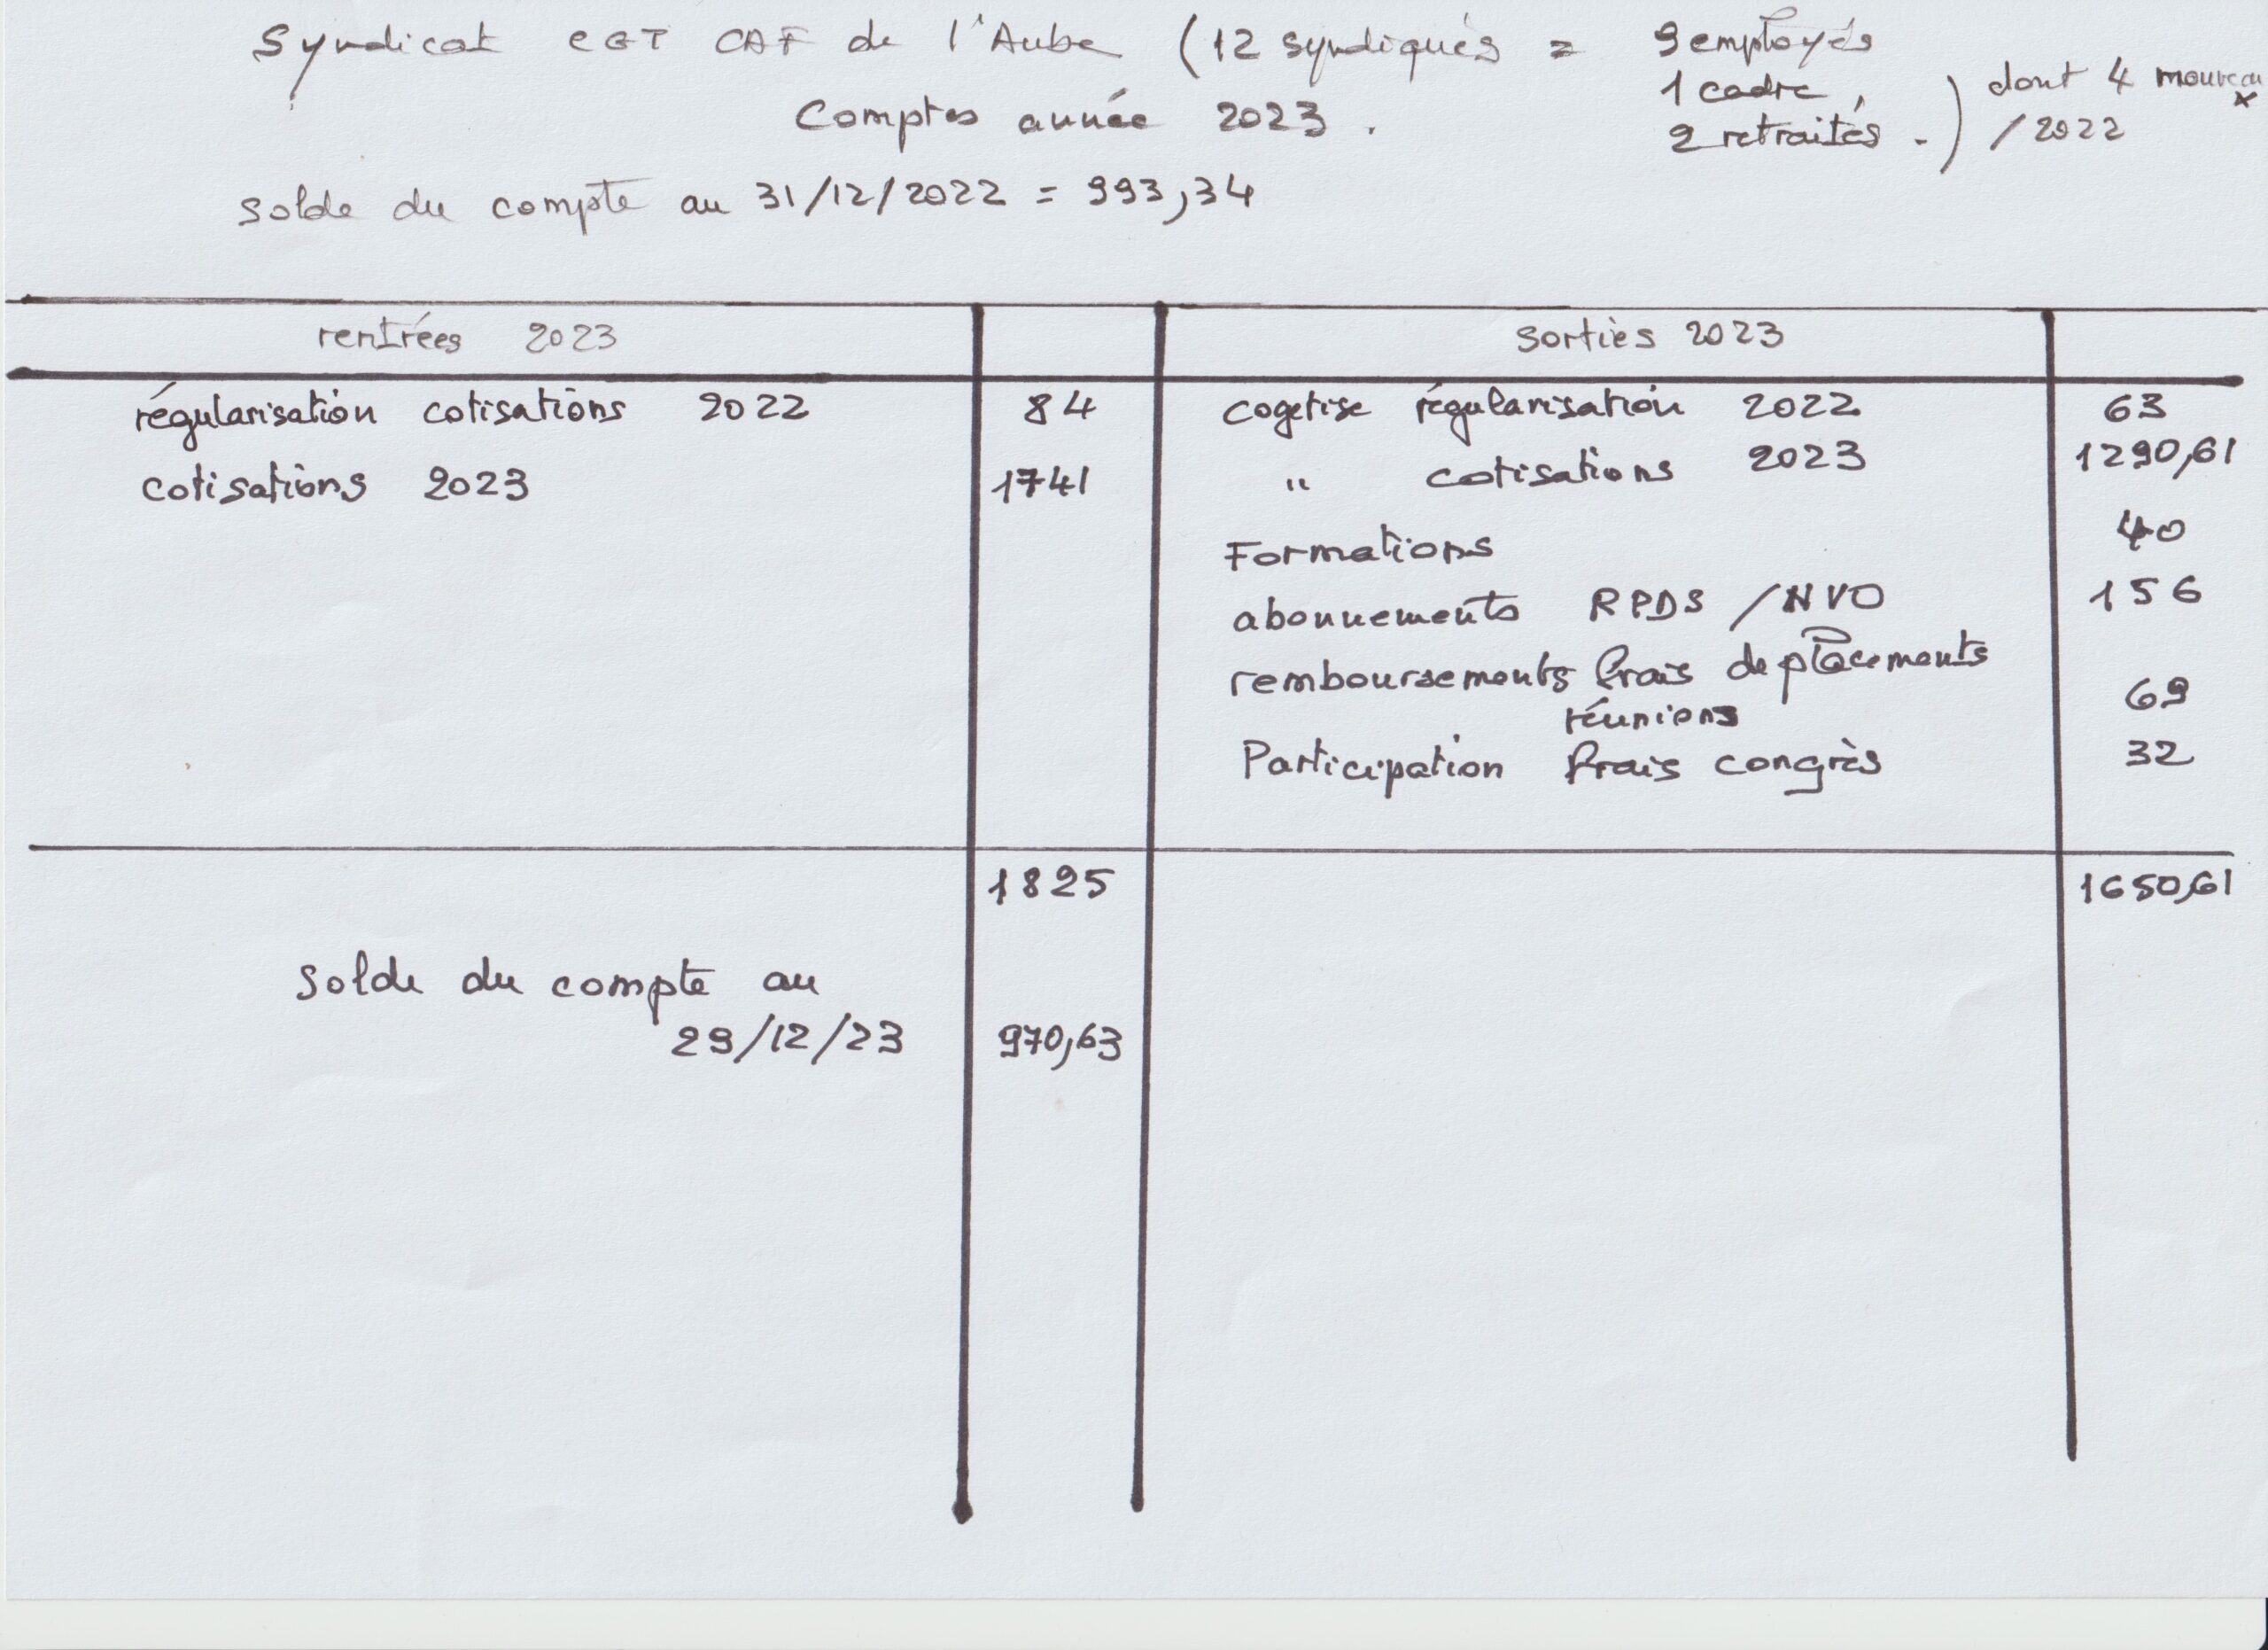 Syndicat CGT CAF de l'Aube (12 syndiqués = 9 employés
1 cadre,
2 retraités.) dont 4 nouveaux
/2022
Comptes année 2023.
solde du compte au 31/12/2022 = 993,34
rentrées 2023
sorties 2023
régularisation cotisations 2022 84
cogetise régularisation 2022 63
cotisations 2023 1741
" cotisations 2023 1290,61
Formations 40
abonnements RPDS /NVO 156
remboursements frais deplacements
réunions 69
Participation frais congrès 32
1825
1650,61
Solde du compte au
29/12/23 970,63